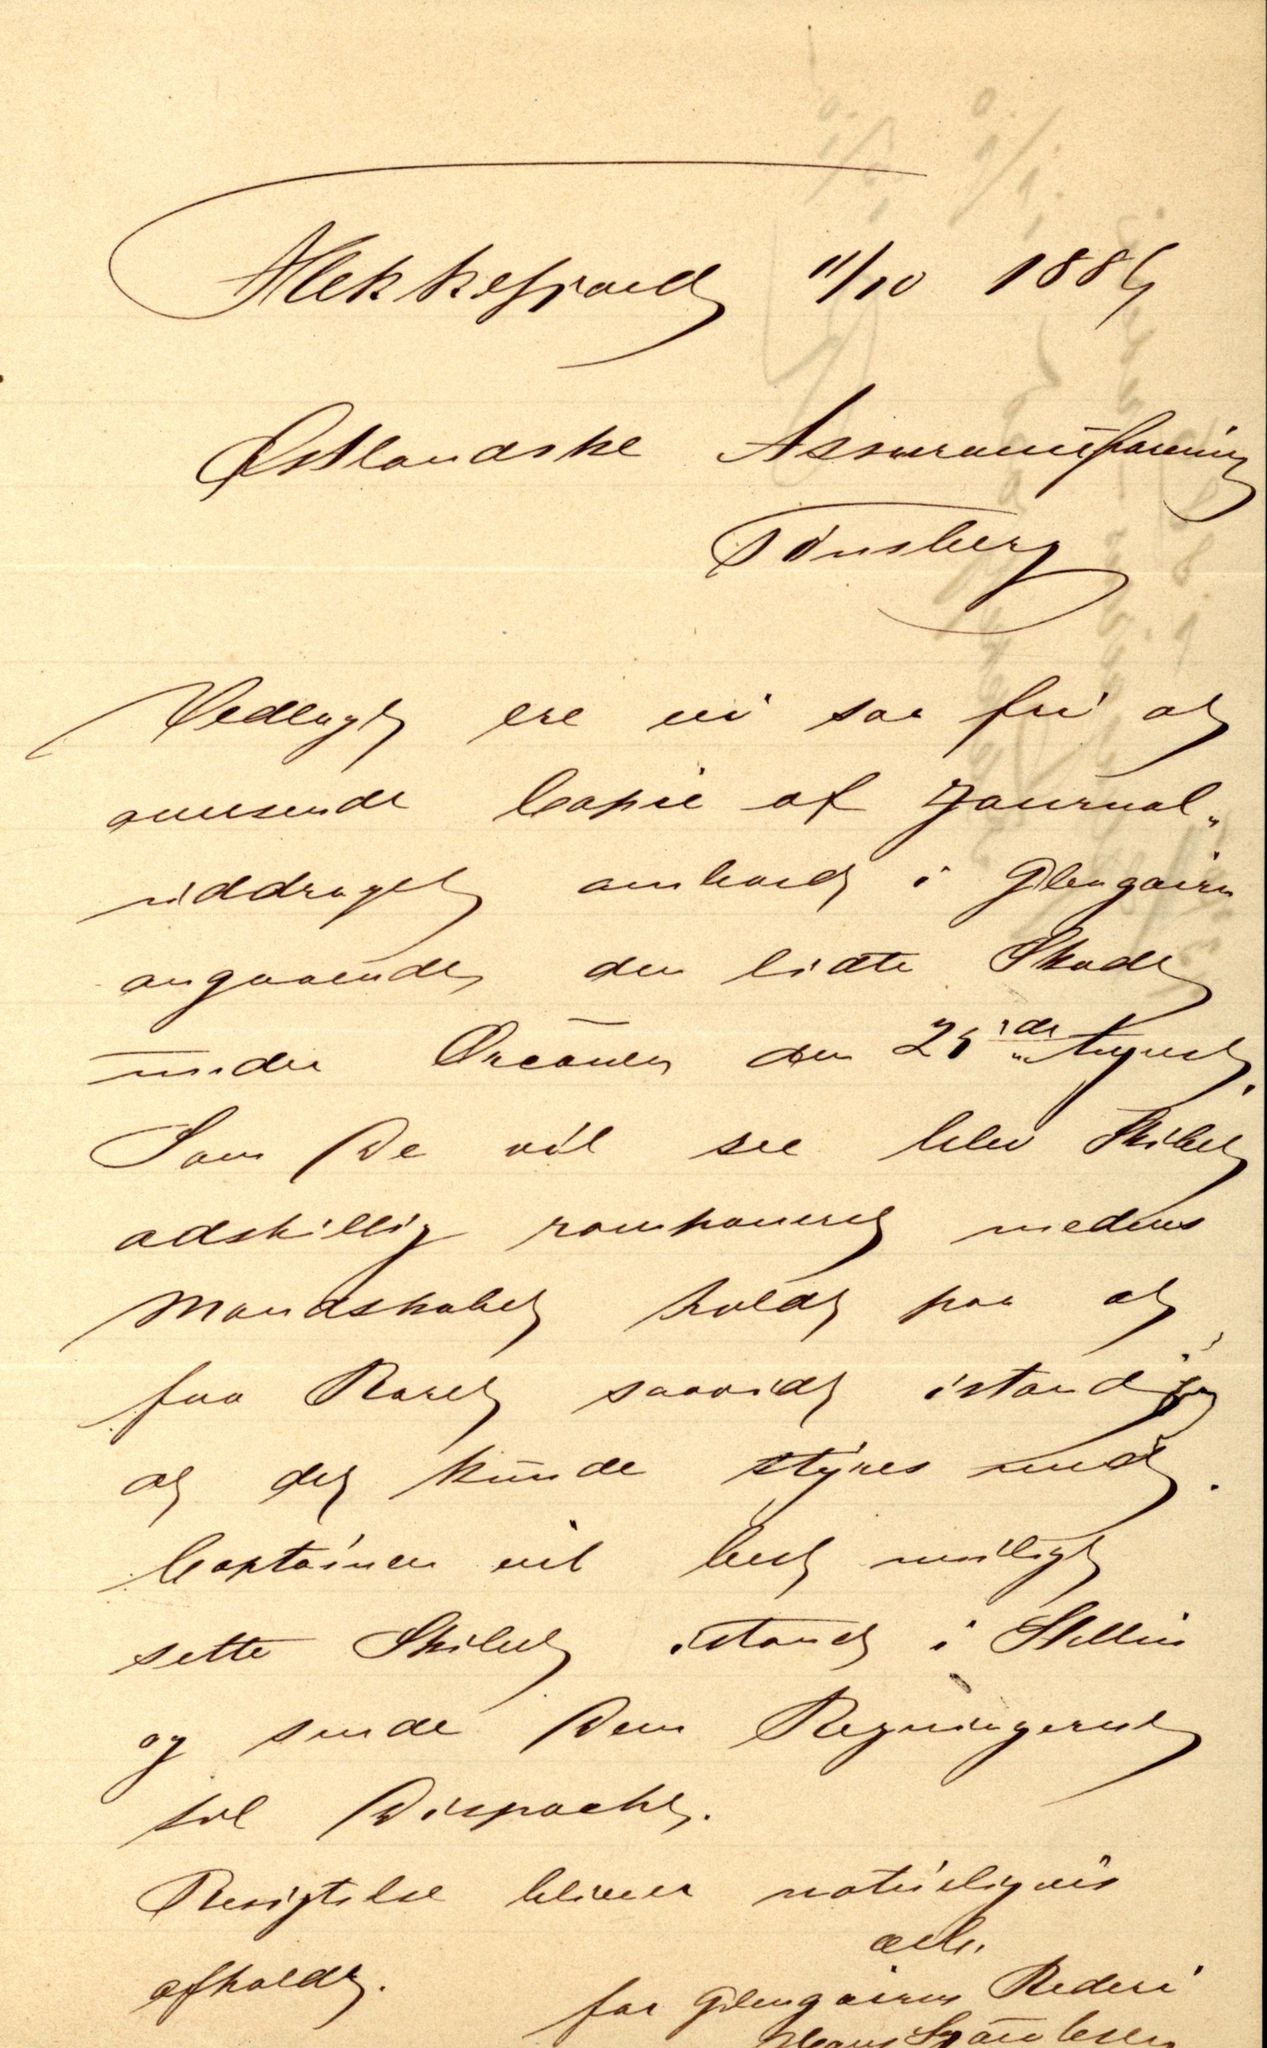 Flekkefjord 11/10 1885
Østlandske Assuranceforening
Tønsberg
Vedlagt ere vi saa fri at
oversende Copie af Journal-
uddraget ombord i Glengairn
angaaende den lidte Skade
under Orcanen den 25de August.
Som De vil see blev Skibet
adskillig ramponeret medens
Mandskabet holdt paa at
faa Roret saavidt istand
at det kunde styres med.
Captainen vil best muligt
sette Skibet istand i Stettin
og sende Dem Regningerne
til Dispache.
Besigtelse bliver naturligvis
afholdt.
ærb.
for Glengairns Rederi